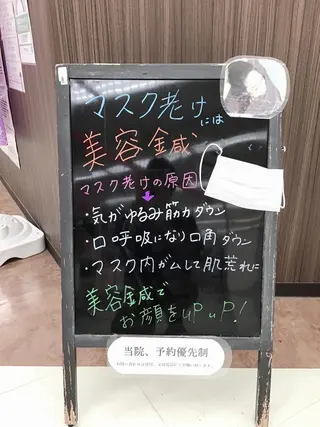 マスク老けには
美容鍼
マスク老けの原因
・気がゆるみ筋力ダウン
・口呼吸になり口角ダウン
・マスク内がムレて肌荒れに
美容鍼で
お顔をuP uP!
当院、予約優先制